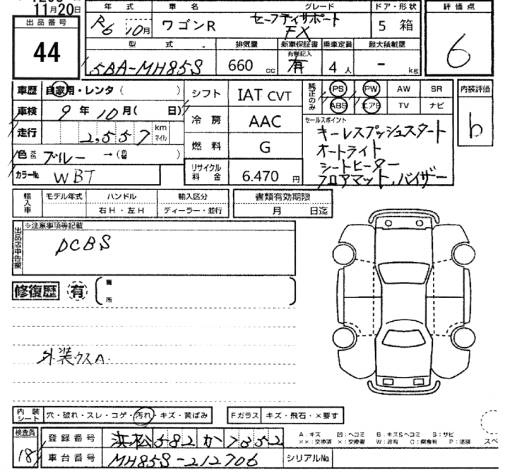 11月20日
出品番号 44
年式 R6年10月
車名 ワゴンR
グレード セーフティサポート FX
ドア・形状 5 箱
評価点 6
型式 5BA-MH85S
排気量 660 cc
新車保証書 有
乗車定員 4 人
最大積載量 - kg
車歴 自家用・レンタ ( )
車検 9年10月( 日)
走行 2,557 km マイル
色 ブルー →( )
カラーNo WBT
シフト IAT CVT
冷房 AAC
燃料 G
リサイクル料金 6.470 円
純正のみ PS PW AW SR
ABS エアB TV ナビ
内装評価 b
セールスポイント
キーレスプッシュスタート
オートライト
シートヒーター
フロアマット,バイザー
輸入車 モデル年式 ハンドル 輸入区分 書類有効期限
右H・左H ディーラー・並行 月 日迄
出品店申告欄 ※注意事項等記載
DCBS
修復歴 有 箇所
外装ウスA
内装シート 穴・破れ・スレ・コゲ・汚れ・キズ・黄ばみ
Fガラス キズ・飛石・×要す
検査員 181
登録番号 浜松582か7352
車台番号 MH85S-212706
シリアルNo